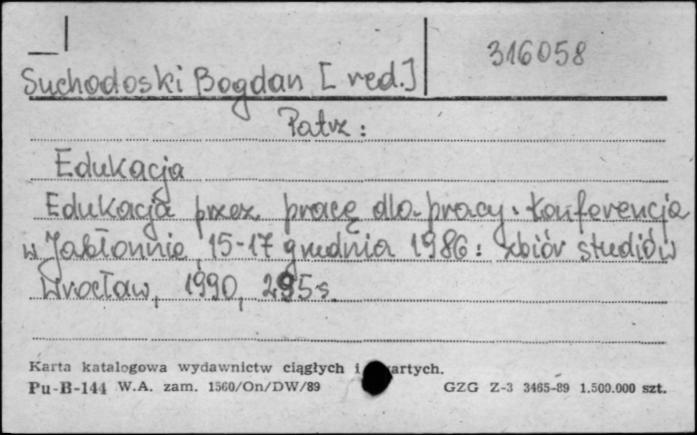 316058
Suchodoski Bogdan [red.]
Patrz:
Edukacja
Edukacja przez pracę dla pracy. Konferencja
w Jabłonnie, 15-17 grudnia 1986: zbiór studiów
Wrocław, 1990, 295 s.
Karta katalogowa wydawnictw ciągłych i artych.
Pu-B-144 W.A. zam. 1560/On/DW/89 GZG Z-3 3465-89 1.500.000 szt.